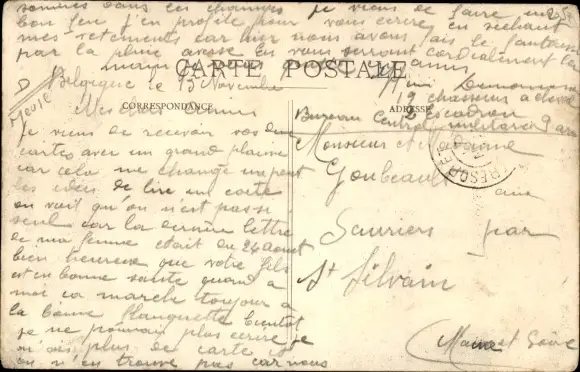 sommes dans les changés je viens de faire un
bon feu j'en profite pour vous écrire en séchant
mes vetements car hier nous avons
par la pluie en vous serront cordialement la
main amis
CARTE POSTALE
D Belgique le 15 Novembre
Meuse
CORRESPONDANCE
Mes chers amis
je viens de recevoir vos deux
cartes avec un grand plaisir
car cela me change un peut
les idées de lire un carte
on voit qu'on n'est pas
seul car la dernière lettre
de ma femme était du 24 aout
bien heureux que votre fils
est en bonne santé quand a
moi ca marche toujour a
la bonne flanquette bientot
je ne pourrais plus ecrire je
n'ais plus de carte et
on n'en trouve pas car nous
ADRESSE
12 chasseurs a cheval
2 escadron
Bureau Central militaire Paris
Monsieur et Madame
Goubeault aux
Sauriers par
St Silvain
Maine et Loire